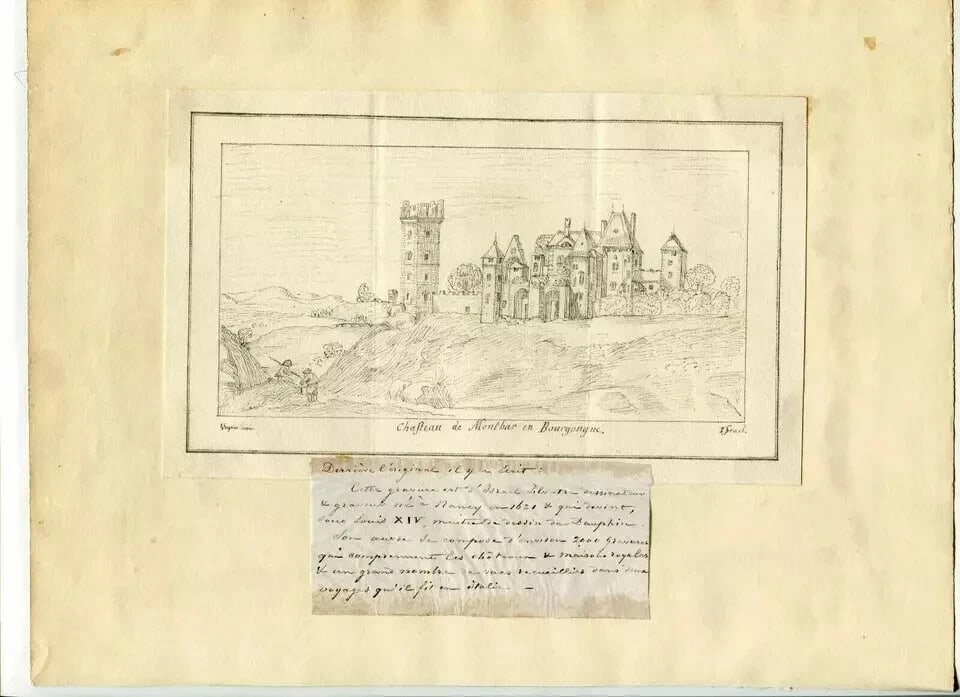 Chasteau de Montbar en Bourgongne.
Israel.
Derrière l'original il y a écrit :
Cette gravure est d'Israel Silvestre dessinateur
& graveur né à Nancy en 1621 & qui devint,
sous Louis XIV, maître de dessin du Dauphin.
Son œuvre se compose d'environ 2000 gravures
qui comprennent les châteaux & maisons royales
& un grand nombre de vues recueillies dans deux
voyages qu'il fit en italie —